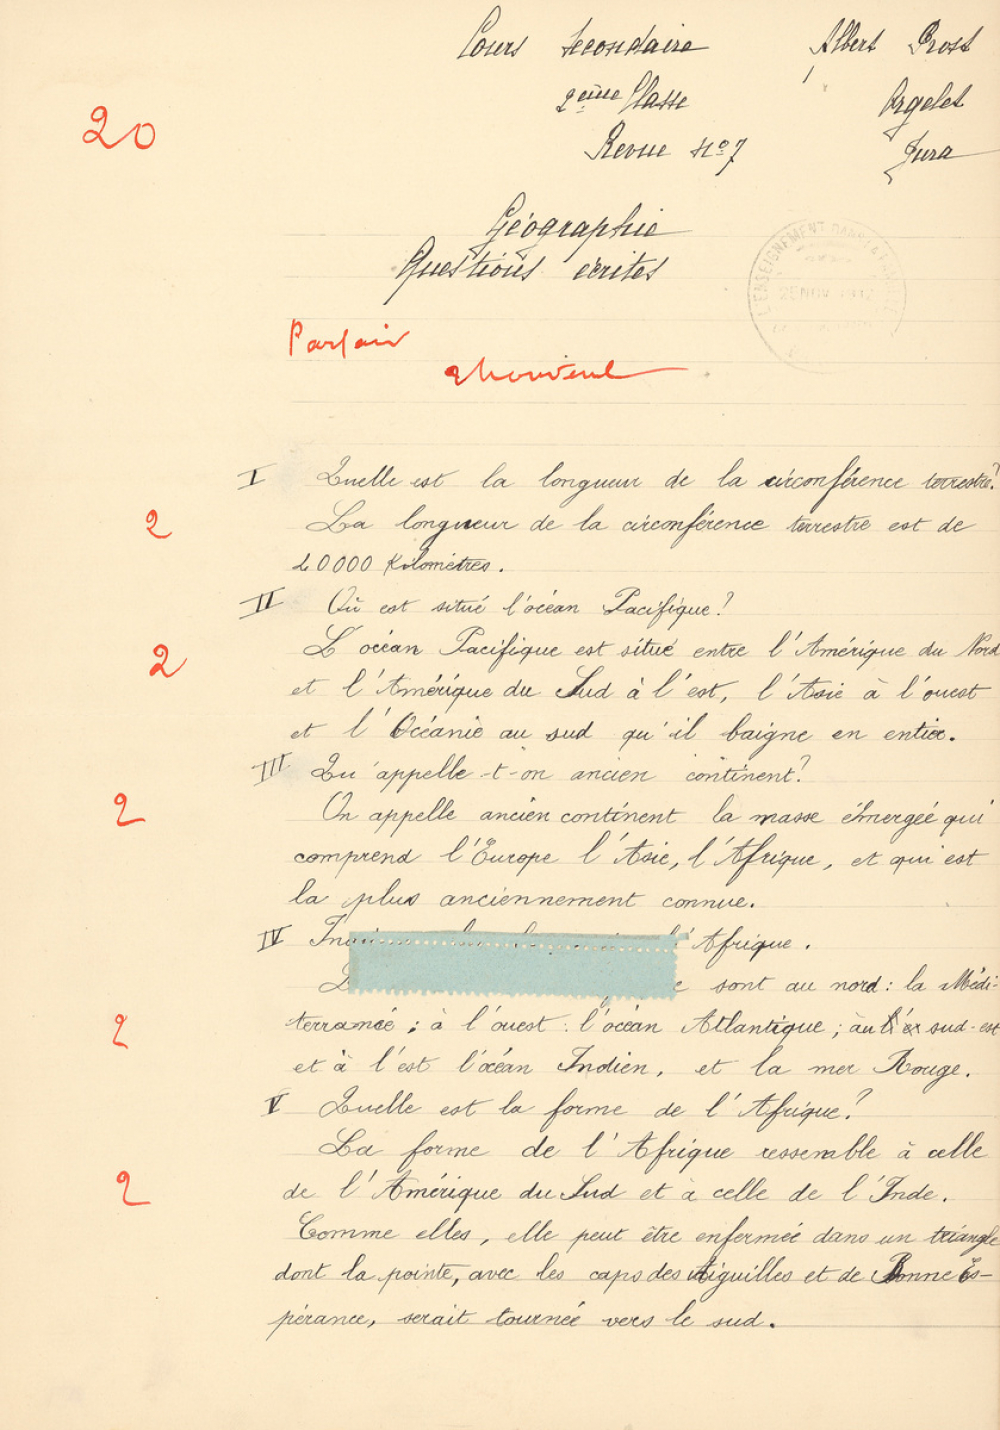 Cours Secondaire
2ème Classe
Revue No 7
Albert Prost
Orgelet
Jura
20
Géographie
Questions écrites
L'ENSEIGNEMENT DANS LA FAMILLE
NOV
Parfait
I Quelle est la longueur de la circonférence terrestre?
2
La longueur de la circonférence terrestre est de
40000 Kilomètres.
II Où est situé l'océan Pacifique?
2
L'océan Pacifique est situé entre l'Amérique du Nord
et l'Amérique du Sud à l'est, l'Asie à l'ouest
et l'Océanie au sud qu'il baigne en entier.
III Qu'appelle-t-on ancien continent?
2
On appelle ancien continent la masse émergée qui
comprend l'Europe l'Asie, l'Afrique, et qui est
la plus anciennement connue.
IV l'Afrique.
sont au nord: la Médi-
2
terranée; à l'ouest: l'océan Atlantique; au sud-est
et à l'est l'océan Indien, et la mer Rouge.
V Quelle est la forme de l'Afrique?
La forme de l'Afrique ressemble à celle
2
de l'Amérique du Sud et à celle de l'Inde.
Comme elles, elle peut être enfermée dans un triangle
dont la pointe, avec les caps des Aiguilles et de Bonne Es-
pérance, serait tournée vers le sud.